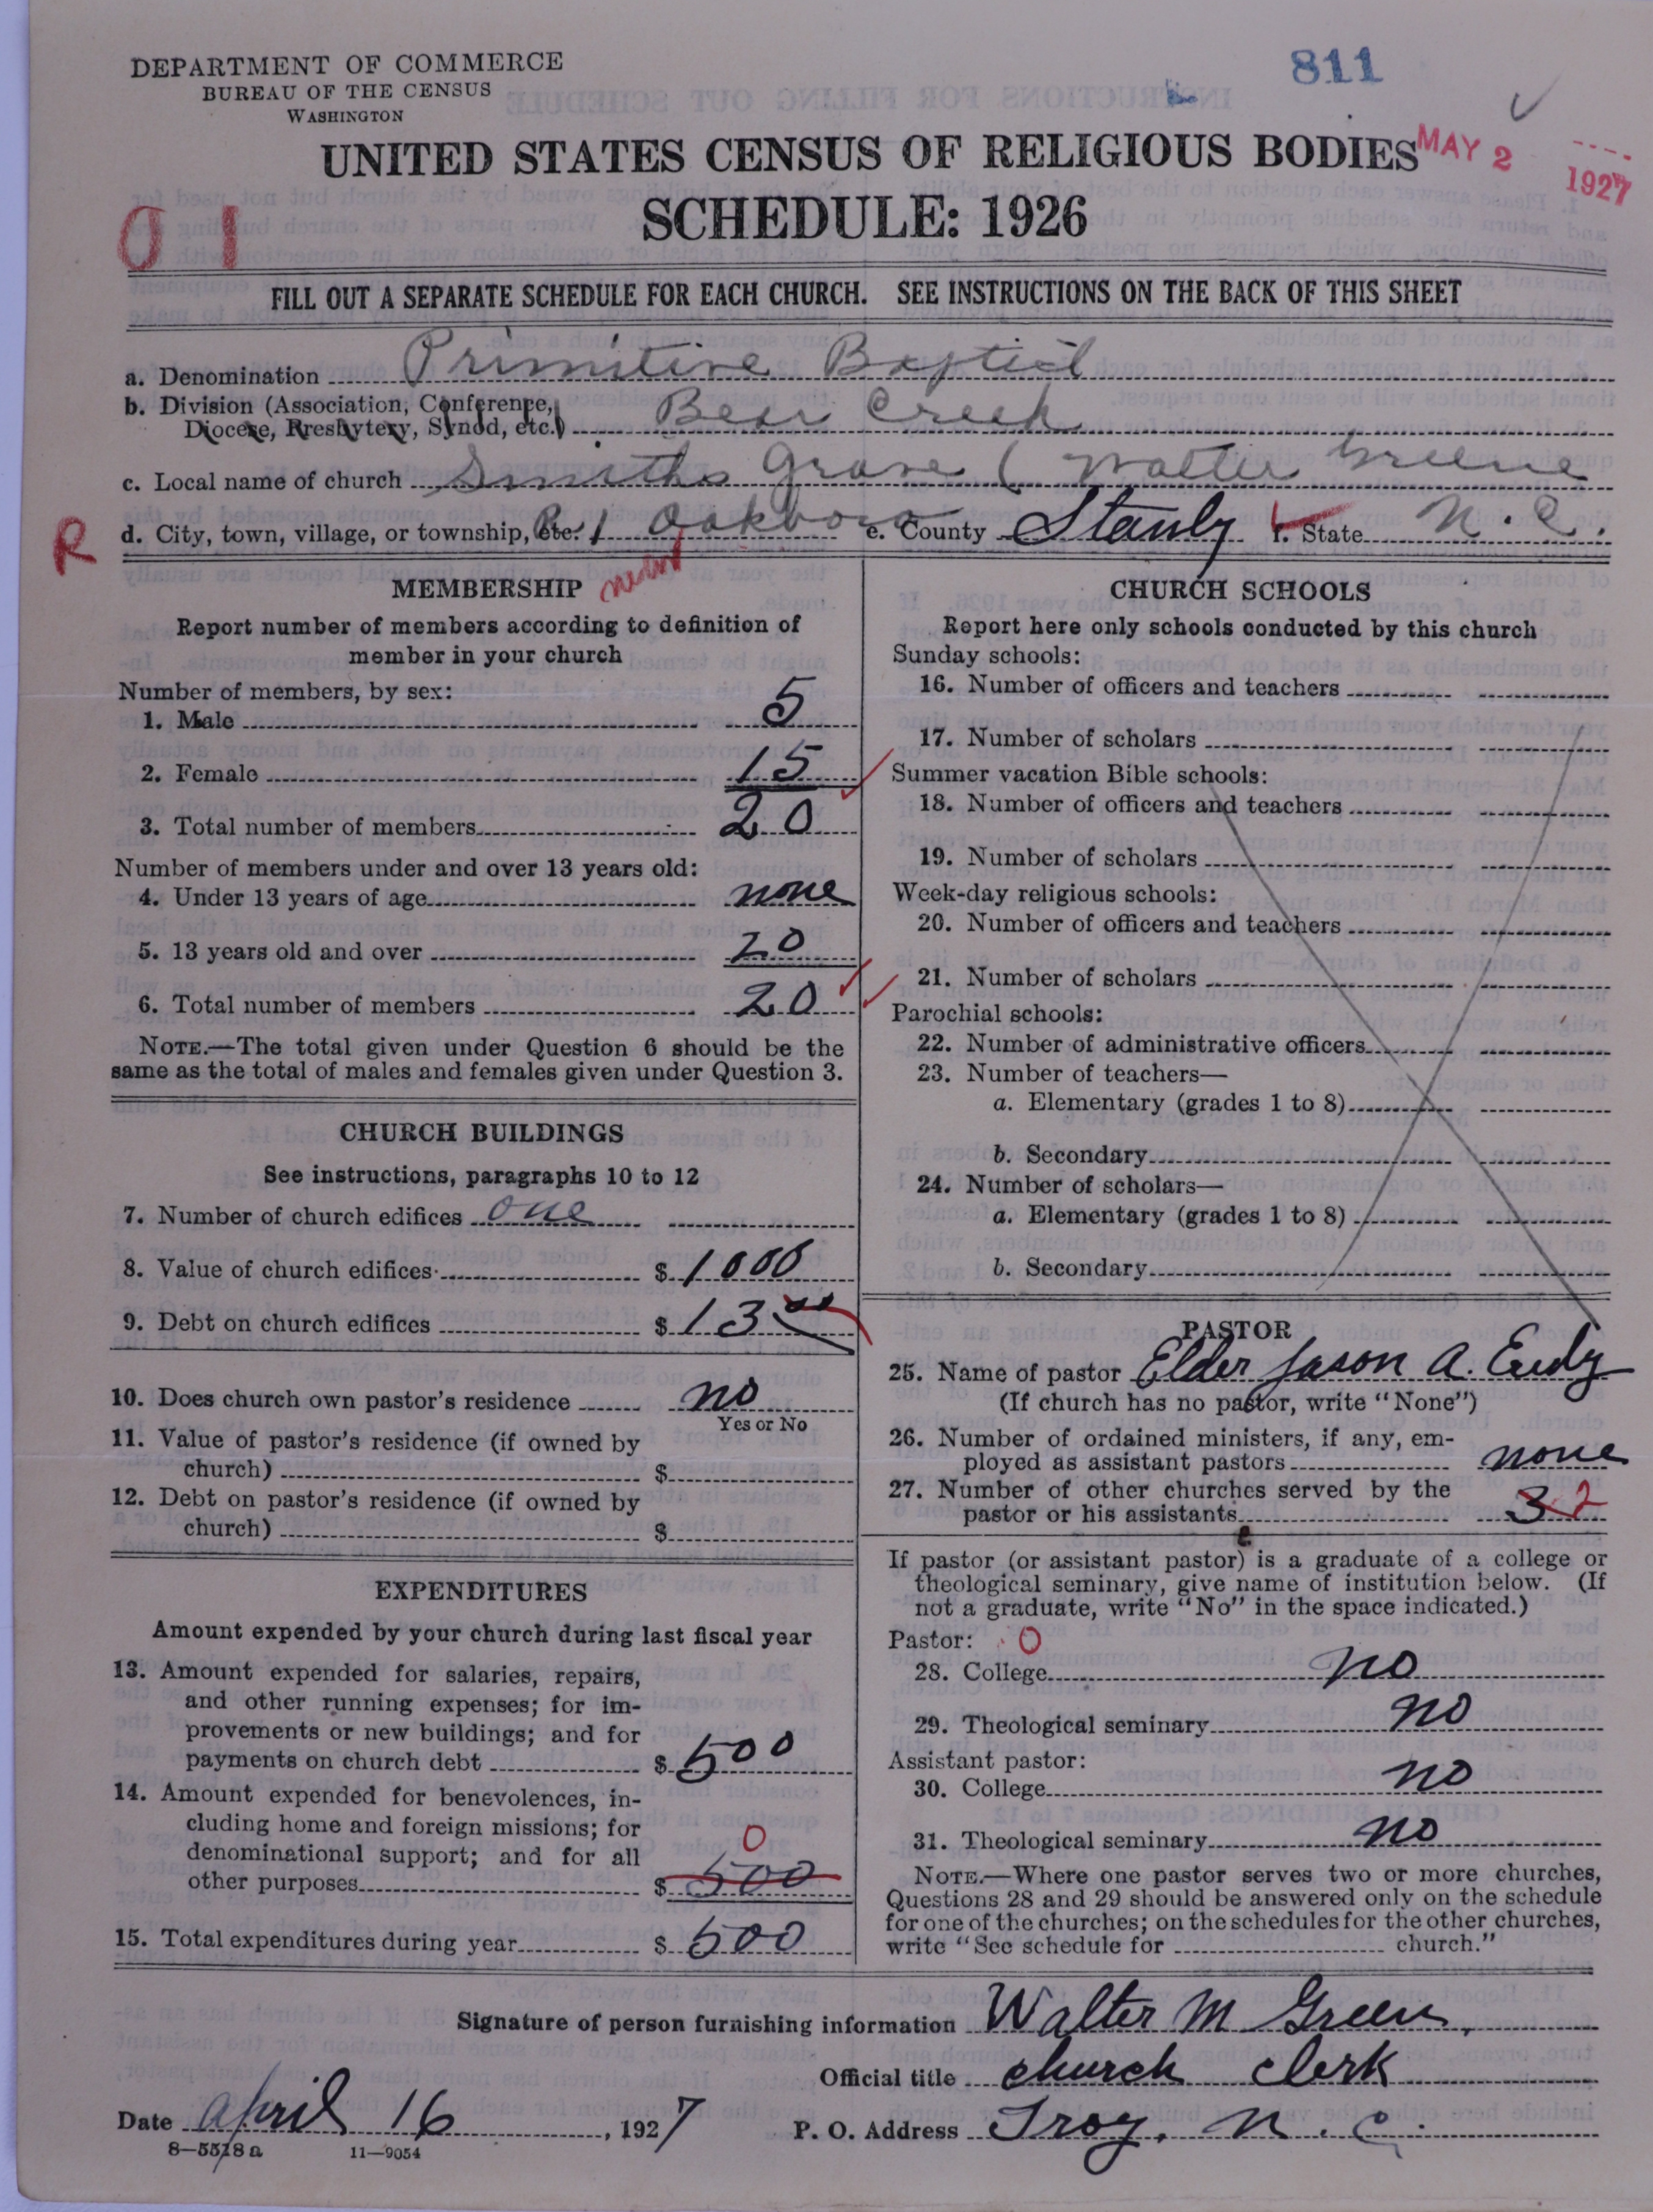 DEPARTMENT OF COMMERCE
BUREAU OF THE CENSUS
WASHINGTON
811
UNITED STATES CENSUS OF RELIGIOUS BODIES
MAY 2 1927
SCHEDULE: 1926
01
FILL OUT A SEPARATE SCHEDULE FOR EACH CHURCH. SEE INSTRUCTIONS ON THE BACK OF THIS SHEET
a. Denomination Primitive Baptist
b. Division (Association, Conference,
Diocese, Presbytery, Synod, etc.) Bear Creek
c. Local name of church Smiths Grove ( Walter Greene
R d. City, town, village, or township, etc. R 1 Oakboro e. County Stanly f. State N.C.
MEMBERSHIP
Report number of members according to definition of
member in your church
Number of members, by sex:
1. Male 5
2. Female 15
3. Total number of members 20
Number of members under and over 13 years old:
4. Under 13 years of age none
5. 13 years old and over 20
6. Total number of members 20
NOTE.—The total given under Question 6 should be the
same as the total of males and females given under Question 3.
CHURCH BUILDINGS
See instructions, paragraphs 10 to 12
7. Number of church edifices one
8. Value of church edifices $ 1000
9. Debt on church edifices $ 13 00
10. Does church own pastor's residence no
Yes or No
11. Value of pastor's residence (if owned by
church) $
12. Debt on pastor's residence (if owned by
church) $
EXPENDITURES
Amount expended by your church during last fiscal year
13. Amount expended for salaries, repairs,
and other running expenses; for im-
provements or new buildings; and for
payments on church debt $ 500
14. Amount expended for benevolences, in-
cluding home and foreign missions; for
denominational support; and for all 0
other purposes $ 500
15. Total expenditures during year $ 500
CHURCH SCHOOLS
Report here only schools conducted by this church
Sunday schools:
16. Number of officers and teachers
17. Number of scholars
Summer vacation Bible schools:
18. Number of officers and teachers
19. Number of scholars
Week-day religious schools:
20. Number of officers and teachers
21. Number of scholars
Parochial schools:
22. Number of administrative officers
23. Number of teachers—
a. Elementary (grades 1 to 8)
b. Secondary
24. Number of scholars—
a. Elementary (grades 1 to 8)
b. Secondary
PASTOR
25. Name of pastor Elder Jason A. Eudy
(If church has no pastor, write "None")
26. Number of ordained ministers, if any, em-
ployed as assistant pastors none
27. Number of other churches served by the
pastor or his assistants 3 2
If pastor (or assistant pastor) is a graduate of a college or
theological seminary, give name of institution below. (If
not a graduate, write "No" in the space indicated.)
Pastor: 0
28. College no
29. Theological seminary no
Assistant pastor:
30. College no
31. Theological seminary no
NOTE.—Where one pastor serves two or more churches,
Questions 28 and 29 should be answered only on the schedule
for one of the churches; on the schedules for the other churches,
write "See schedule for church."
Signature of person furnishing information Walter M Green
Official title church clerk
Date April 16, 1927 P. O. Address Troy, N.C.
8—5518a 11—9054